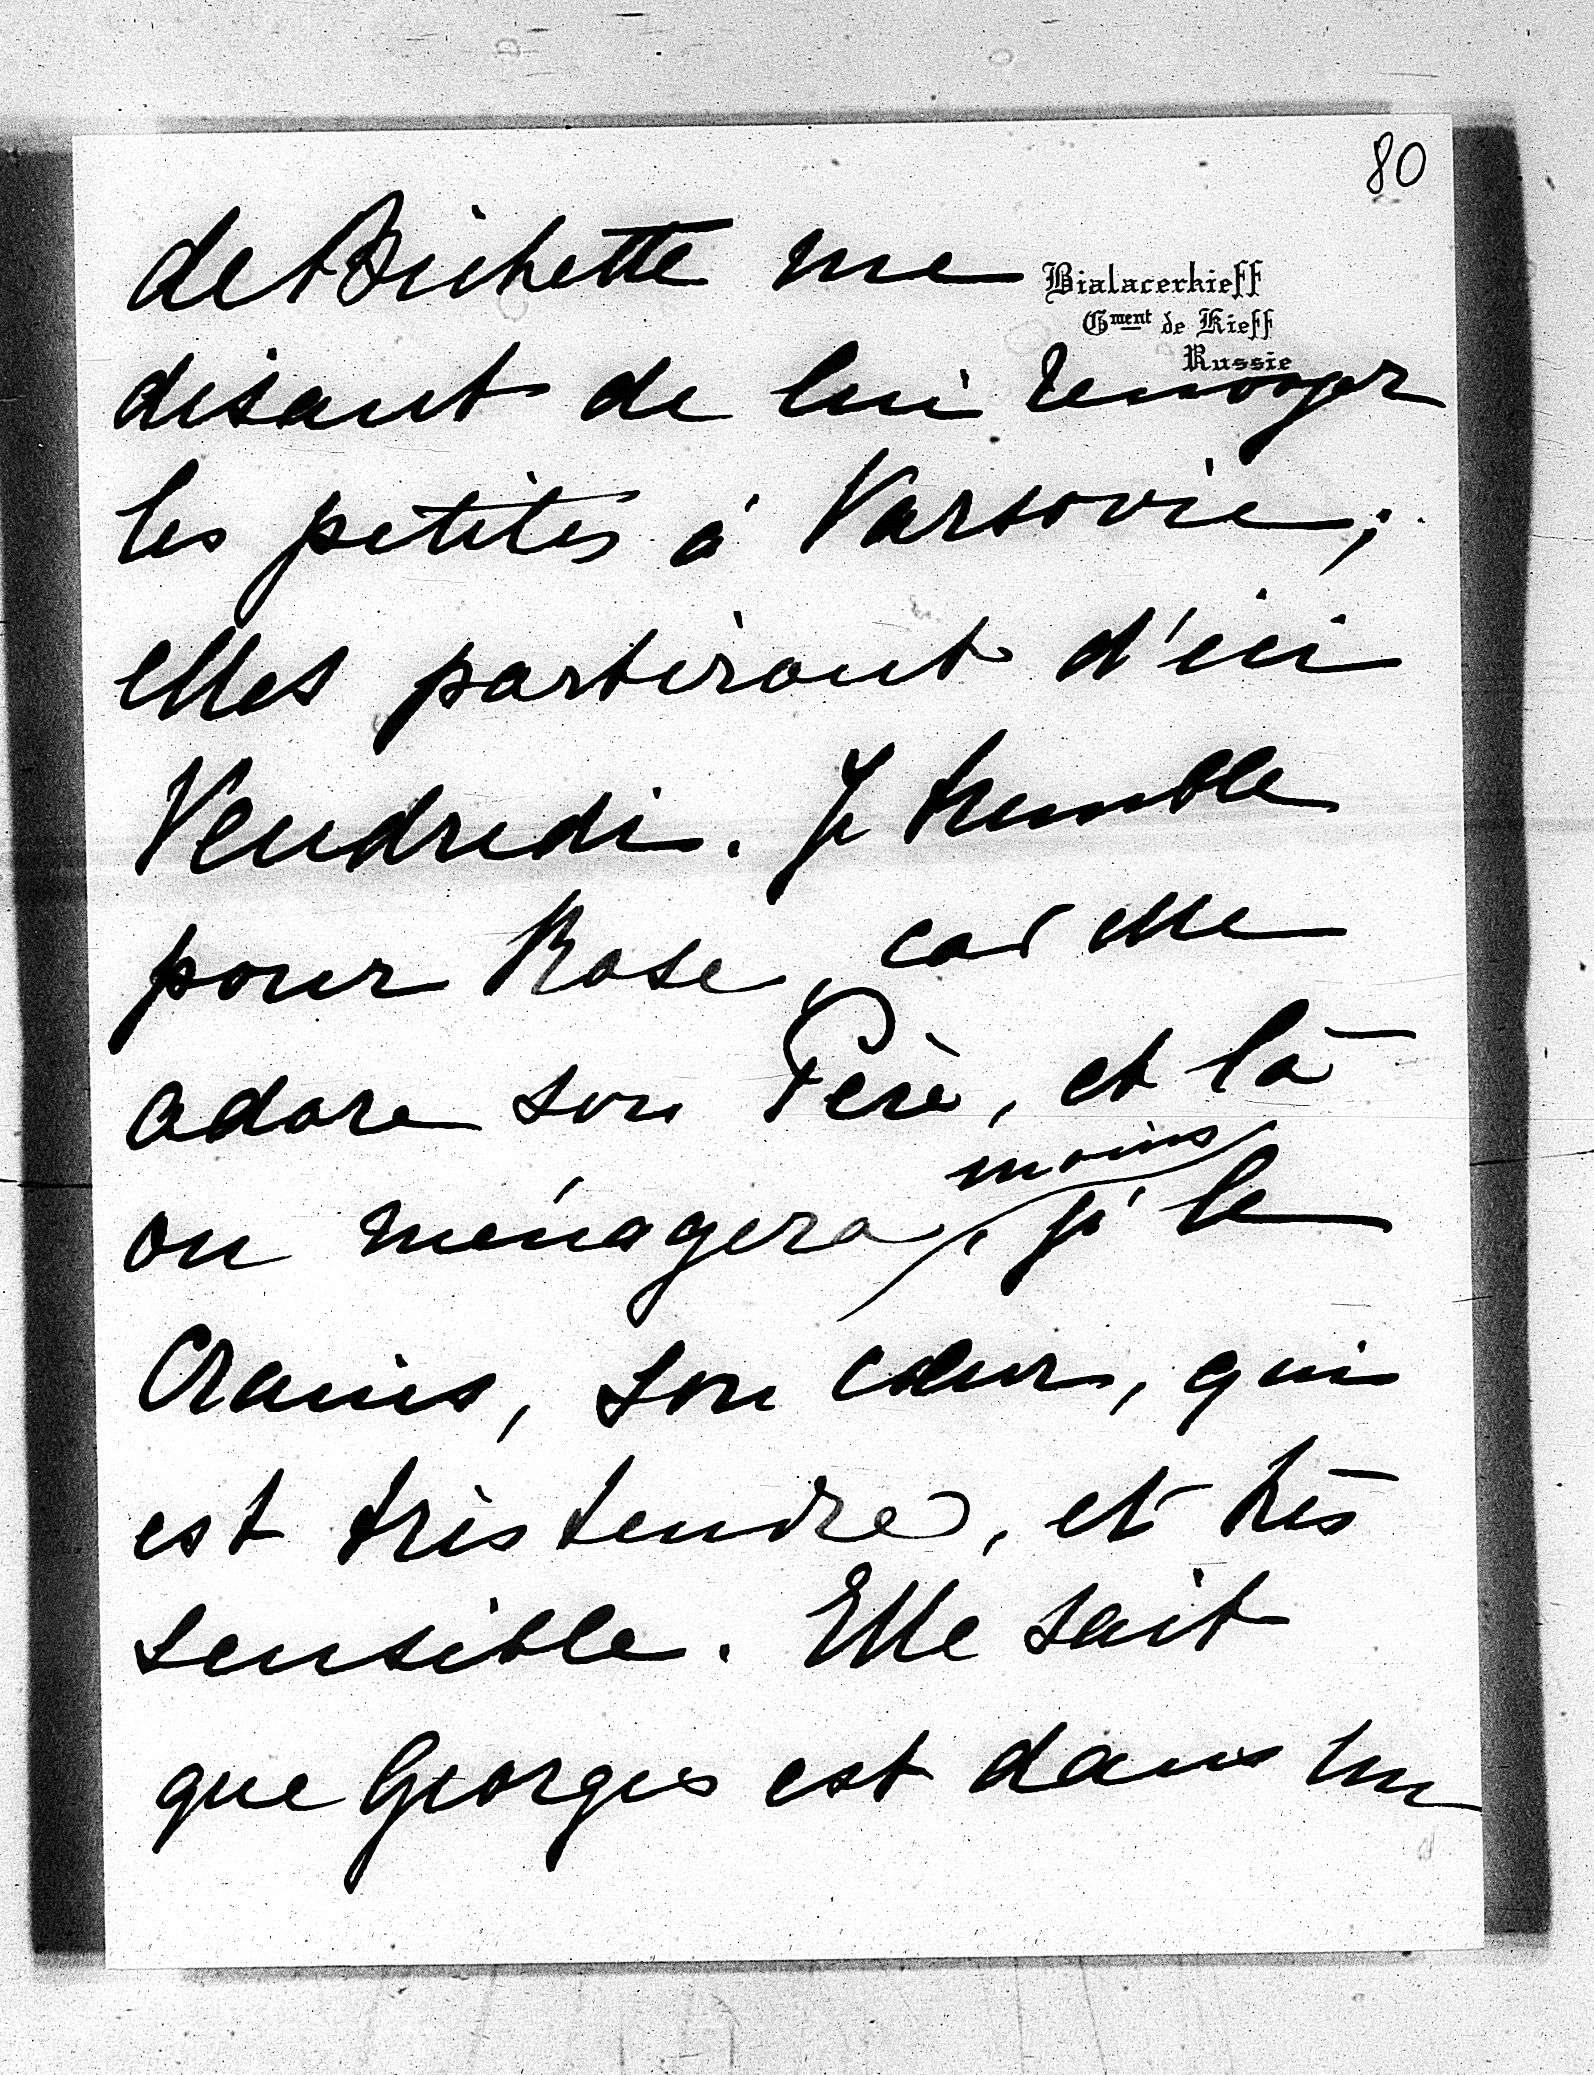 80
Bialacerkieff
Gment de Kieff
Russie
de Bichette me
disant de lui renvoyer
les petites à Varsovie;
elles partiront d'ici
Vendredi. Je tremble
pour Rose, car elle
adore son Père, et là
moins
on ménagera, je le
Crains, son cœur, qui
est très tendre, et très
sensible. Elle sait
que Georges est dans un